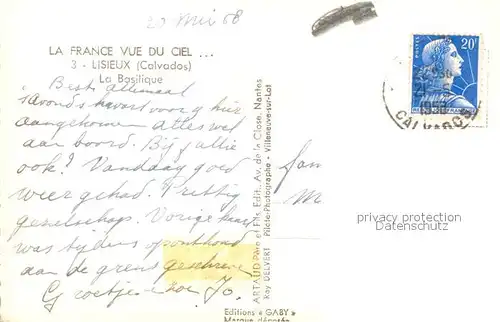 20 Mei 58
LA FRANCE VUE DU CIEL ...
3 - LISIEUX (Calvados)
La Basilique
Beste allemaal
s'avonds kwart voor 9 hier
aangekomen alles wel
aan boord. Bij jullie
ook? Vandaag goed
weer gehad. Prettig
gezelschap. Vorige kaart
was tijdens oponthoud
aan de grens geschreven
Groetjes Jo.
ARTAUD Père et Fils Edit. Av. de la Close, Nantes
Ray DELVERT Pilote-Photographe - Villeneuve-sur-Lot
Editions "GABY"
Marque déposée
fam
M
POSTES
20F
1958
CALVADOS
privacy protection
Datenschutz